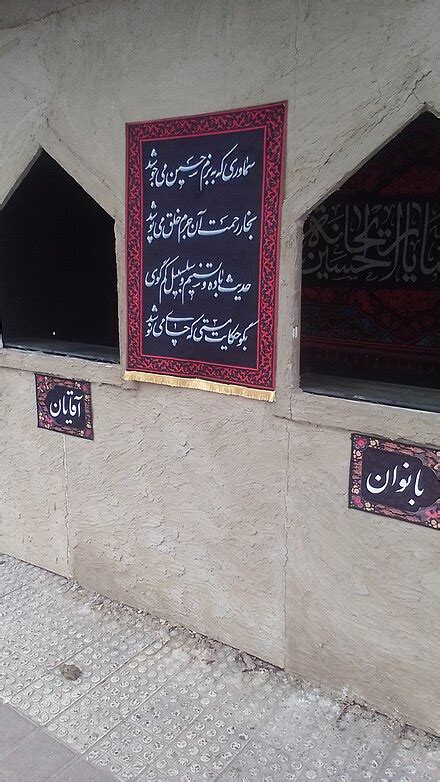 سماوری که به بزم حسین می جوشد
بخار رحمت آن جرم خلق می پوشد
حدیث باده و تسنیم و سلسبیل کم گوی
بگو حکایت مستی که چای می نوشد
آقایان
بانوان
الحسین